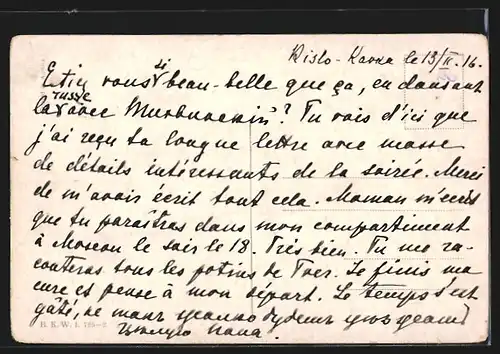 Kislo-Kavka le 13/II. 16.
Etiez vous si beau-belle que ça, en dansant
la russe avec ? Tu vois d'ici que
j'ai reçu ta longue lettre avec masse
de détails intéressants de la soirée. Merci
de m'avoir écrit tout cela. Maman m'écrit
que tu paraîtras dans mon compartiment
à Moscou le soir le 18. Très bien. Tu me ra-
conteras tous les potins de Tver. Je finis ma
cure et pense à mon départ. Le temps s'est
gâté, не жалко будет
целую папа.
B. K. W. I.